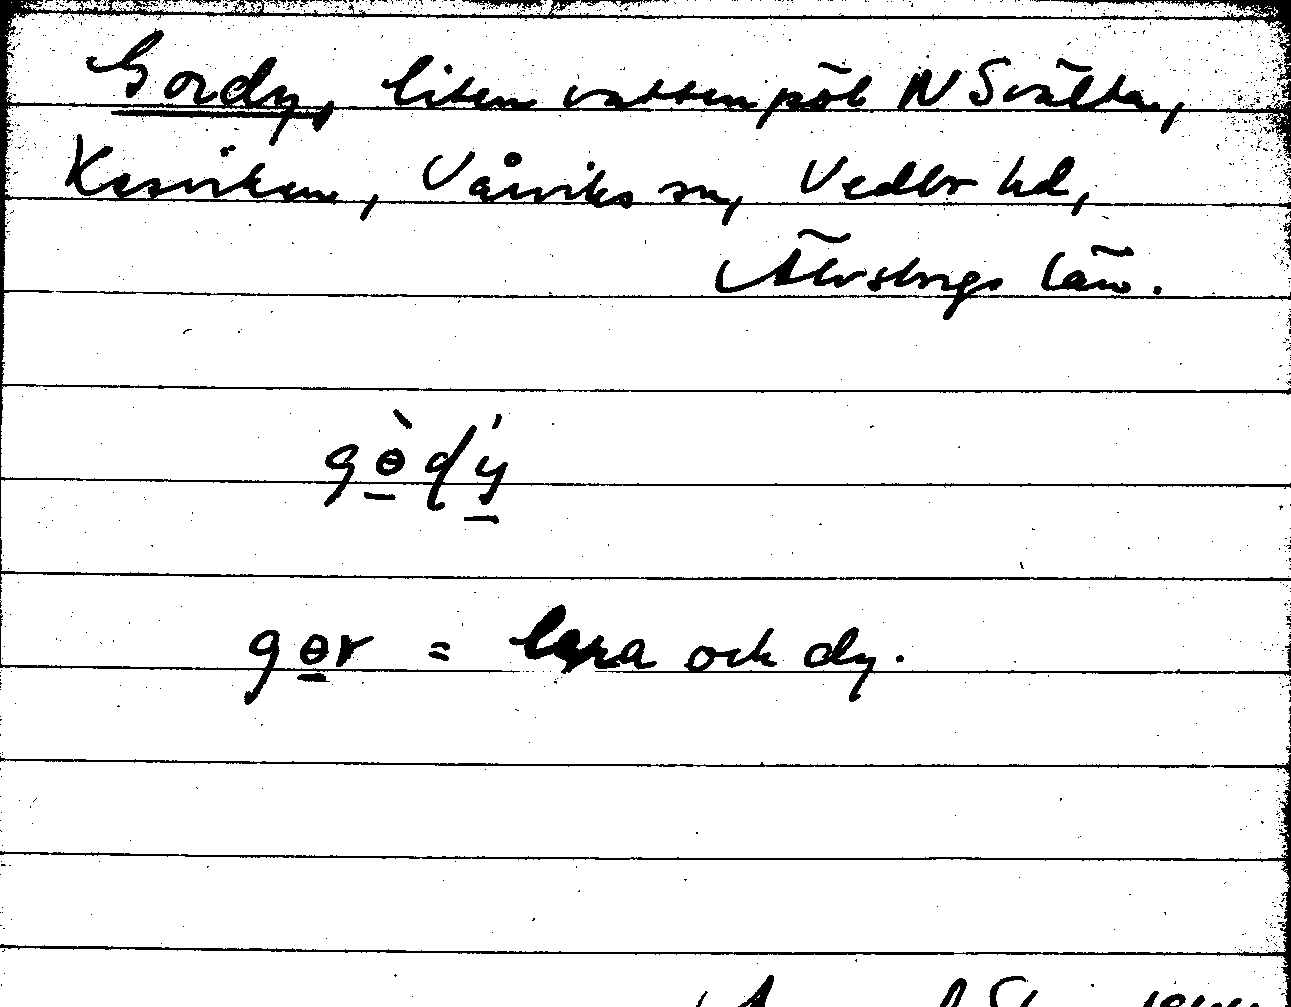 Gordy, liten vattenpöl N Svälta,
Kesviken, Vårviks sn, Vedbo hd,
Älvsborgs län.
gɵ̀dý
gɵr = lera och dy.